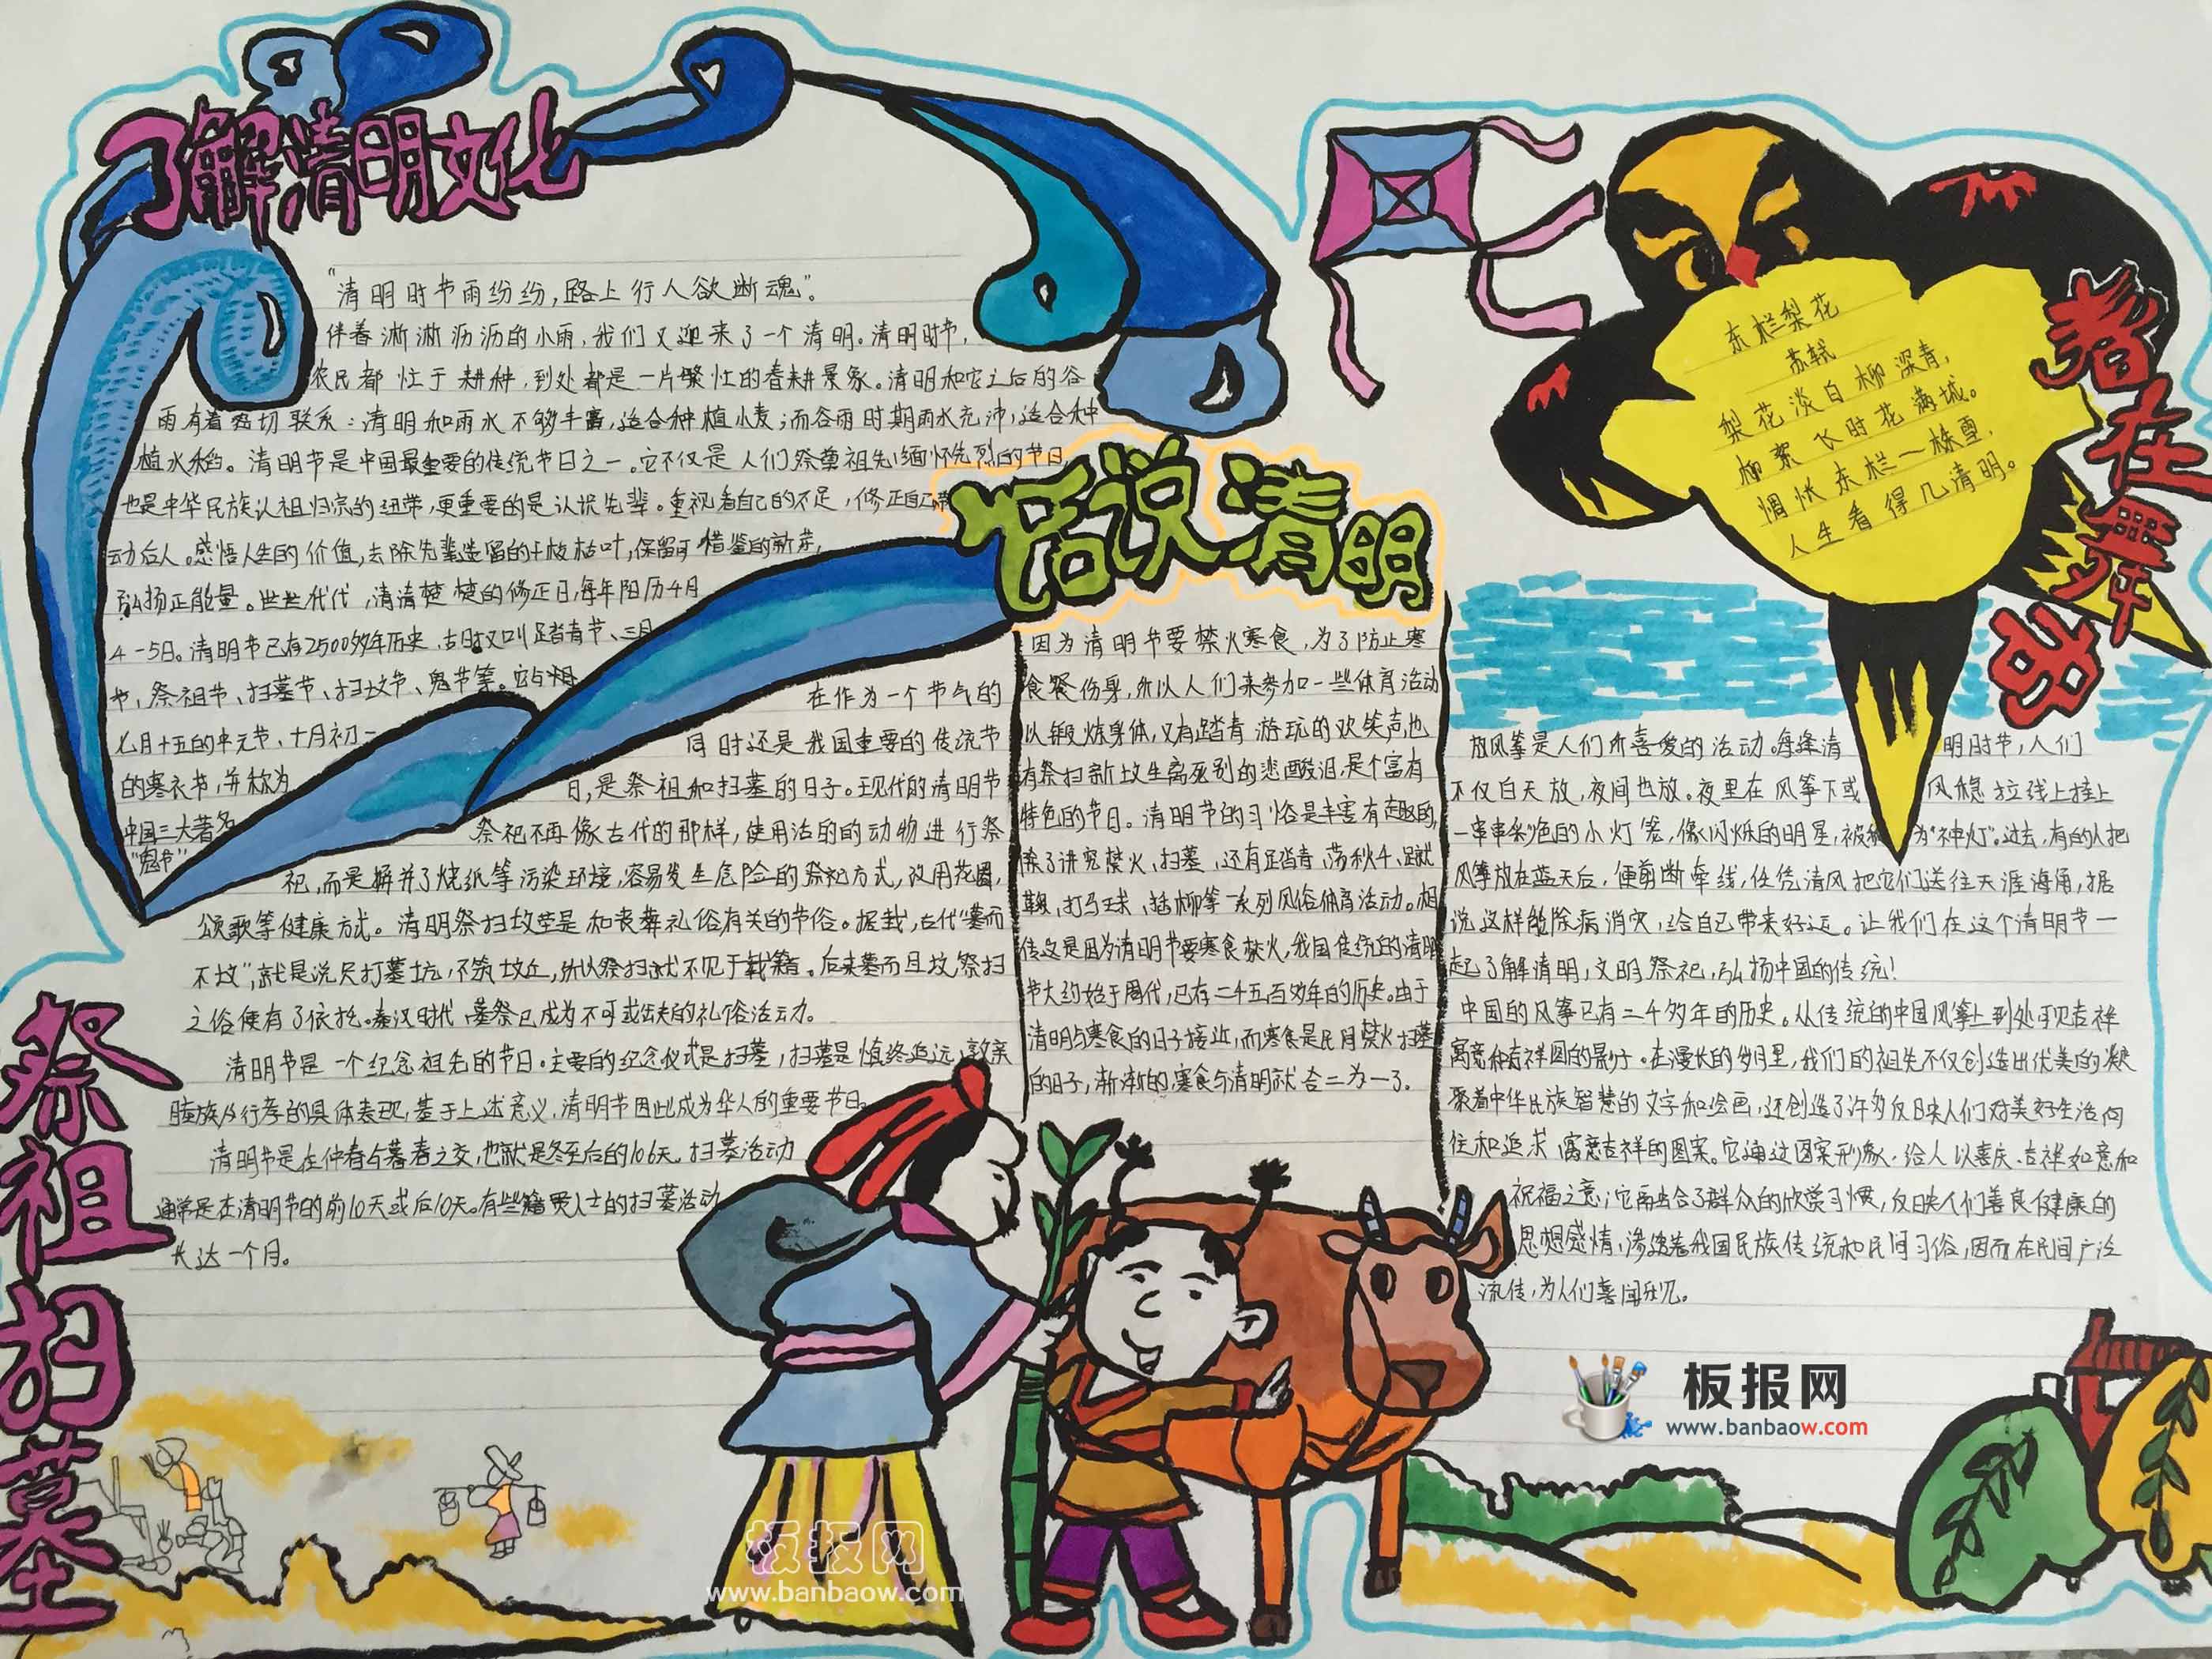 了解清明文化
“清明时节雨纷纷,路上行人欲断魂”。
伴着淅淅沥沥的小雨,我们又迎来了一个清明。清明时节,
农民都忙于耕种,到处都是一片繁忙的春耕景象。清明和它之后的谷
雨有着密切联系:清明和雨水不够丰富,适合种植小麦;而谷雨时期雨水充沛,适合种
植水稻。清明节是中国最重要的传统节日之一。它不仅是人们祭奠祖先,缅怀先烈的节日,
也是中华民族认祖归宗的纽带,更重要的是认识先辈。重视看自己的不足,修正自己
动后人。感悟人生的价值,去除先辈遗留的干枝枯叶,保留可借鉴的新芽,
弘扬正能量。世世代代,清清楚楚的修正日,每年阳历4月
4-5日。清明节已有2500多年历史,古时又叫踏青节、三月
节、祭祖节、扫墓节、扫坟节、鬼节等。它与
七月十五的中元节、十月初一
的寒衣节,并称为
中国三大著名
“鬼节”
在作为一个节气的
同时还是我国重要的传统节
日,是祭祖和扫墓的日子。现代的清明节
祭祀不再像古代的那样,使用活的的动物进行祭
祀,而是摒弃了烧纸等污染环境,容易发生危险的祭祀方式,改用花圈,
颂歌等健康方式。清明祭扫坟茔是和丧葬礼俗有关的节俗。据载,古代“墓而
不坟”,就是说尺打墓坑,不筑坟丘,所以祭扫就不见于载籍。后来墓而且坟,祭扫
之俗便有了依托。秦汉时代,墓祭已成为不可或缺的礼俗活动。
清明节是一个纪念祖先的节日。主要的纪念仪式是扫墓,扫墓是慎终追远、敦亲
睦族及行孝的具体表现,基于上述意义,清明节因此成为华人的重要节日。
清明节是在仲春与暮春之交,也就是冬至后的106天。扫墓活动
通常是在清明节的前10天或后10天。有些籍贯人士的扫墓活动
长达一个月。
祭祖扫墓
话说清明
因为清明节要禁火寒食,为了防止寒
食餐伤身,所以人们来参加一些体育活动
以锻炼身体,又有踏青游玩的欢笑声,也
有祭扫新坟生离死别的悲酸泪,是个富有
特色的节日。清明节的习俗是丰富有趣的,
除了讲究禁火、扫墓,还有踏青、荡秋千、蹴
鞠、打马球、插柳等一系列风俗体育活动。相
传这是因为清明节要寒食禁火,我国传统的清明
节大约始于周代,已有二千五百多年的历史。由于
清明与寒食的日子接近,而寒食是民间禁火扫墓
的日子,渐渐的,寒食与清明就合二为一了。
东栏梨花
苏轼
梨花淡白柳深青,
柳絮飞时花满城。
惆怅东栏一株雪,
人生看得几清明。
放风筝是人们所喜爱的活动。每逢清明时节,人们
不仅白天放,夜间也放。夜里在风筝下或风稳拉线上挂上
一串串彩色的小灯笼,像闪烁的明星,被称为“神灯”。过去,有的人把
风筝放在蓝天后,便剪断牵线,任凭清风把它们送往天涯海角,据
说这样能除病消灾,给自己带来好运。让我们在这个清明节一
起了解清明,文明祭祀,弘扬中国的传统!
中国的风筝已有二千多年的历史。从传统的中国风筝上到处可见吉祥
寓意和吉祥图的影子。在漫长的岁月里,我们的祖先不仅创造出优美的凝
聚着中华民族智慧的文字和绘画,还创造了许多反映人们对美好生活向
往和追求,寓意吉祥的图案。它通过图案形象,给人以喜庆、吉祥如意和
祝福之意;它融合了群众的欣赏习惯,反映人们善良健康的
思想感情,渗透着我国民族传统和民间习俗,因而在民间广泛
流传,为人们喜闻乐见。
板报网
www.banbaow.com
板报网
www.banbaow.com